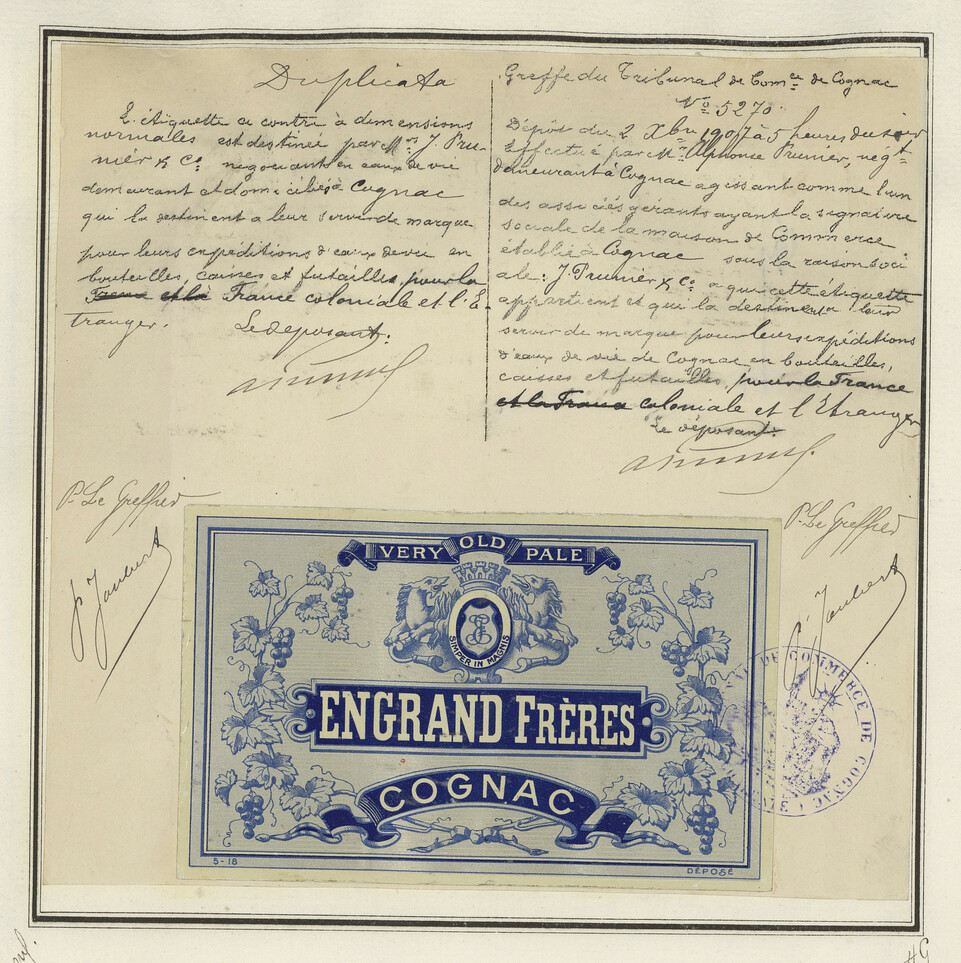 Duplicata
L'étiquette ci contre à dimensions
normales est destinée par Mrs J. Pru-
nier & Co négociants en eaux de vie
demeurant et domiciliés à Cognac
qui la destinent a leur servir de marque
pour leurs expéditions d'eaux de vie en
bouteilles, caisses et futailles, pour la
France et la France coloniale et l'E-
tranger.
Le déposant.
P. Le Greffier
Greffe du Tribunal de Comce de Cognac
No 5270
Dépôs du 2 Xbre 1907 à 5 heures du soir
Effectué par Mr Alphonse Prunier, négt
demeurant à Cognac agissant comme l'un
des associés gérants ayant la signature
sociale de la maison de Commerce
établie à Cognac sous la raison soci
ale: J. Prunier & Co a qui cette étiquette
appartient et qui la destinent a leur
servir de marque pour leurs expéditions
d'eaux de vie de Cognac en bouteilles,
caisses et futailles, pour la France
et la France coloniale et l'Etranger
Le déposant.
P. Le Greffier
VERY OLD PALE
SIMPER IN MAGNIS
ENGRAND FRÈRES
COGNAC
5-18
DÉPOSÉ
DE COMMERCE DE COGNAC